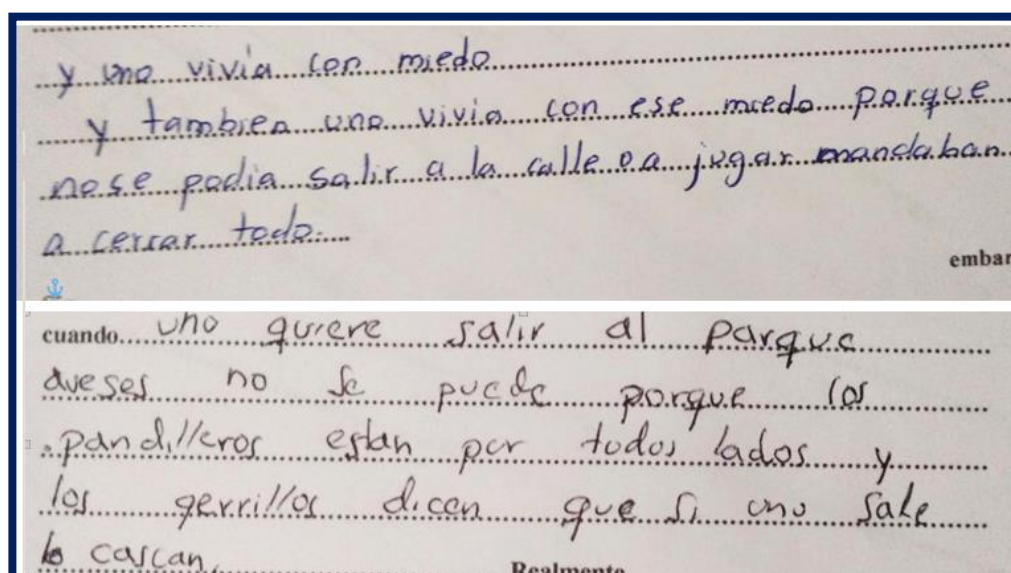 y uno vivia con miedo
y tambien uno vivia con ese miedo porque
no se podia salir a la calle o a jugar mandaban
a cerrar todo.
embar
cuando uno quiere salir al parque
aveses no se puede porque los
pandilleros estan por todos lados y
los gerrillos dicen que si uno sale
lo cascan.
Realmente